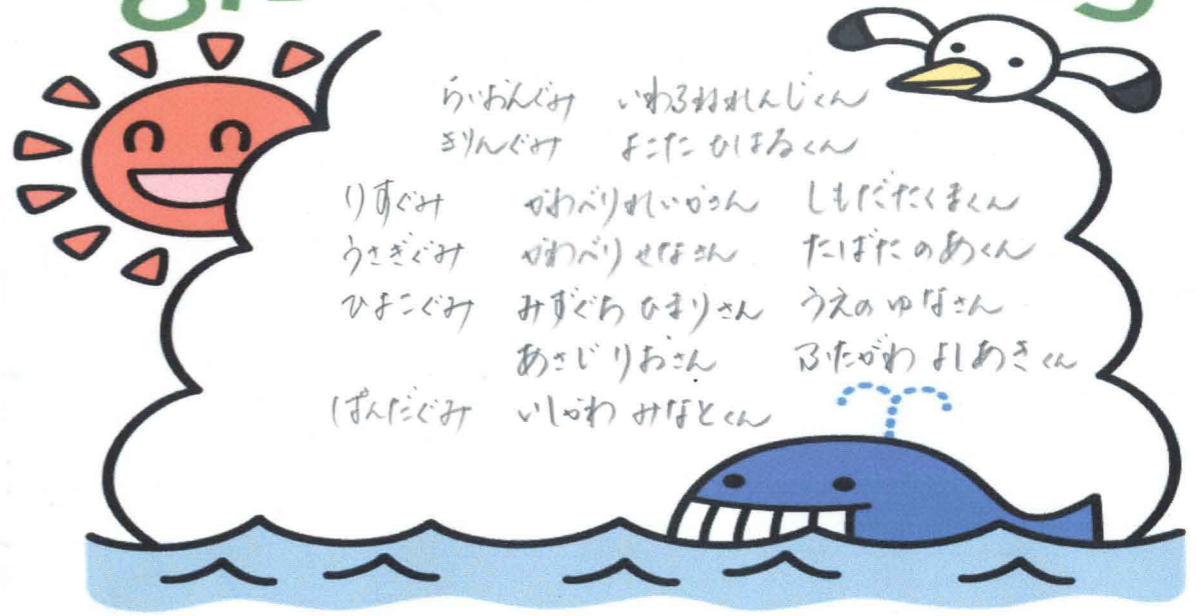 らいおんぐみ いわるねれんじくん
きりんぐみ よこた ひはるくん
りすぐみ かわべりれいかさん しもだたくまくん
うさぎぐみ かわべりせなさん たばたのあくん
ひよこぐみ みずぐち ひまりさん うえのゆなさん
あさじ りおさん ふたがわ よしあきくん
ぱんだぐみ いしかわ みなとくん